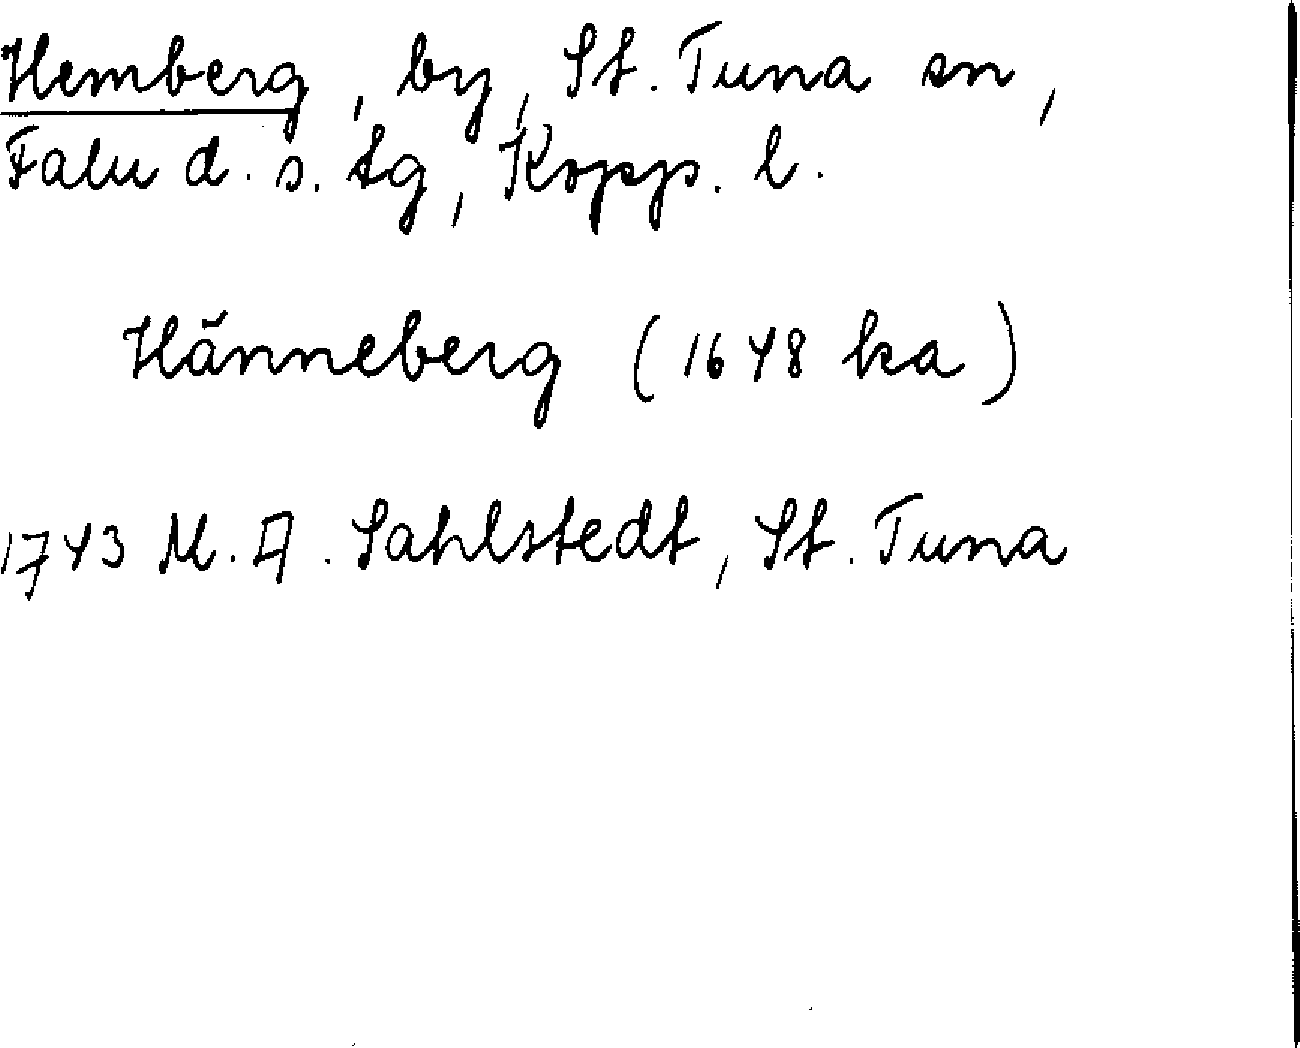 Hemberg, by, St. Tuna sn,
Falu d. s. tg, Kopp. l.
Hänneberg (1648 ka)
1743 M. A. Sahlstedt, St. Tuna